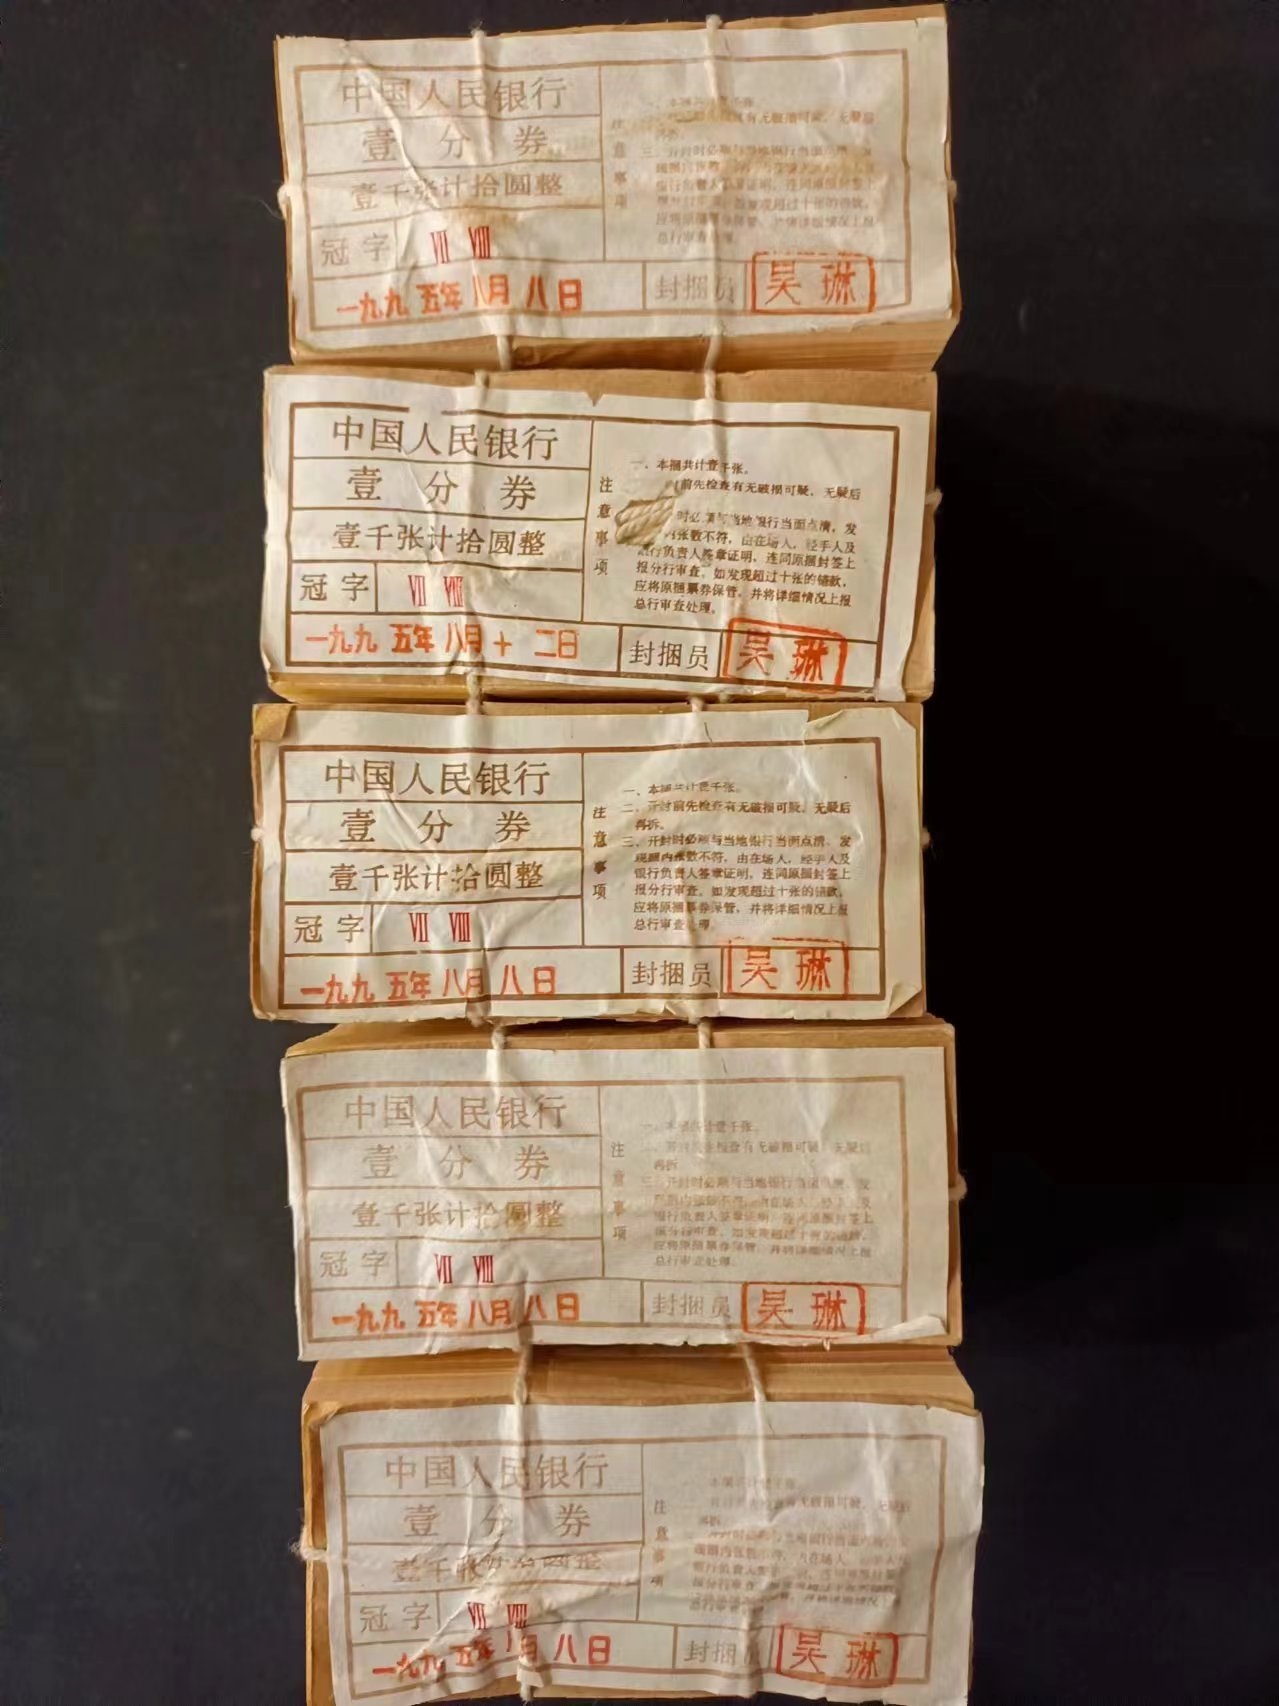 中国人民银行
壹 分 券
壹千张计拾圆整
冠字 Ⅶ Ⅷ
一九九五年八月八日
注意事项
有无破损可疑，无疑后
应将原捆票券保管，并将详细情况上报
总行审查处理。
封捆员 吴琳
中国人民银行
壹 分 券
壹千张计拾圆整
冠字 Ⅶ Ⅷ
一九九五年八月十二日
注意事项
一、本捆共计壹千张。
前先检查有无破损可疑，无疑后
时必须与当地银行当面点清，发
内张数不符，由在场人，经手人及
银行负责人签章证明，连同原捆封签上
报分行审查。如发现超过十张的错款，
应将原捆票券保管，并将详细情况上报
总行审查处理。
封捆员 吴琳
中国人民银行
壹 分 券
壹千张计拾圆整
冠字 Ⅶ Ⅷ
一九九五年八月八日
注意事项
一、本捆共计壹千张。
二、开封前先检查有无破损可疑，无疑后
再拆。
三、开封时必须与当地银行当面点清，发
现捆内张数不符，由在场人，经手人及
银行负责人签章证明，连同原捆封签上
报分行审查。如发现超过十张的错款，
应将原捆票券保管，并将详细情况上报
总行审查处理。
封捆员 吴琳
中国人民银行
壹 分 券
壹千张计拾圆整
冠字 Ⅶ Ⅷ
一九九五年八月八日
注意事项
一、本捆共计壹千张。
检查有无破损可疑，无疑后
再拆。
三、开封时必须与当地银行当面点清，发
银行负责人签章证明，连同原捆封签上
报分行审查。如发现超过十张的错款，
应将原捆票券保管，并将详细情况上报
总行审查处理。
封捆员 吴琳
中国人民银行
壹 分 券
壹千张计拾圆整
冠字 Ⅶ Ⅷ
一九九五年八月八日
注意事项
有无破损可疑，无疑后
封捆员 吴琳